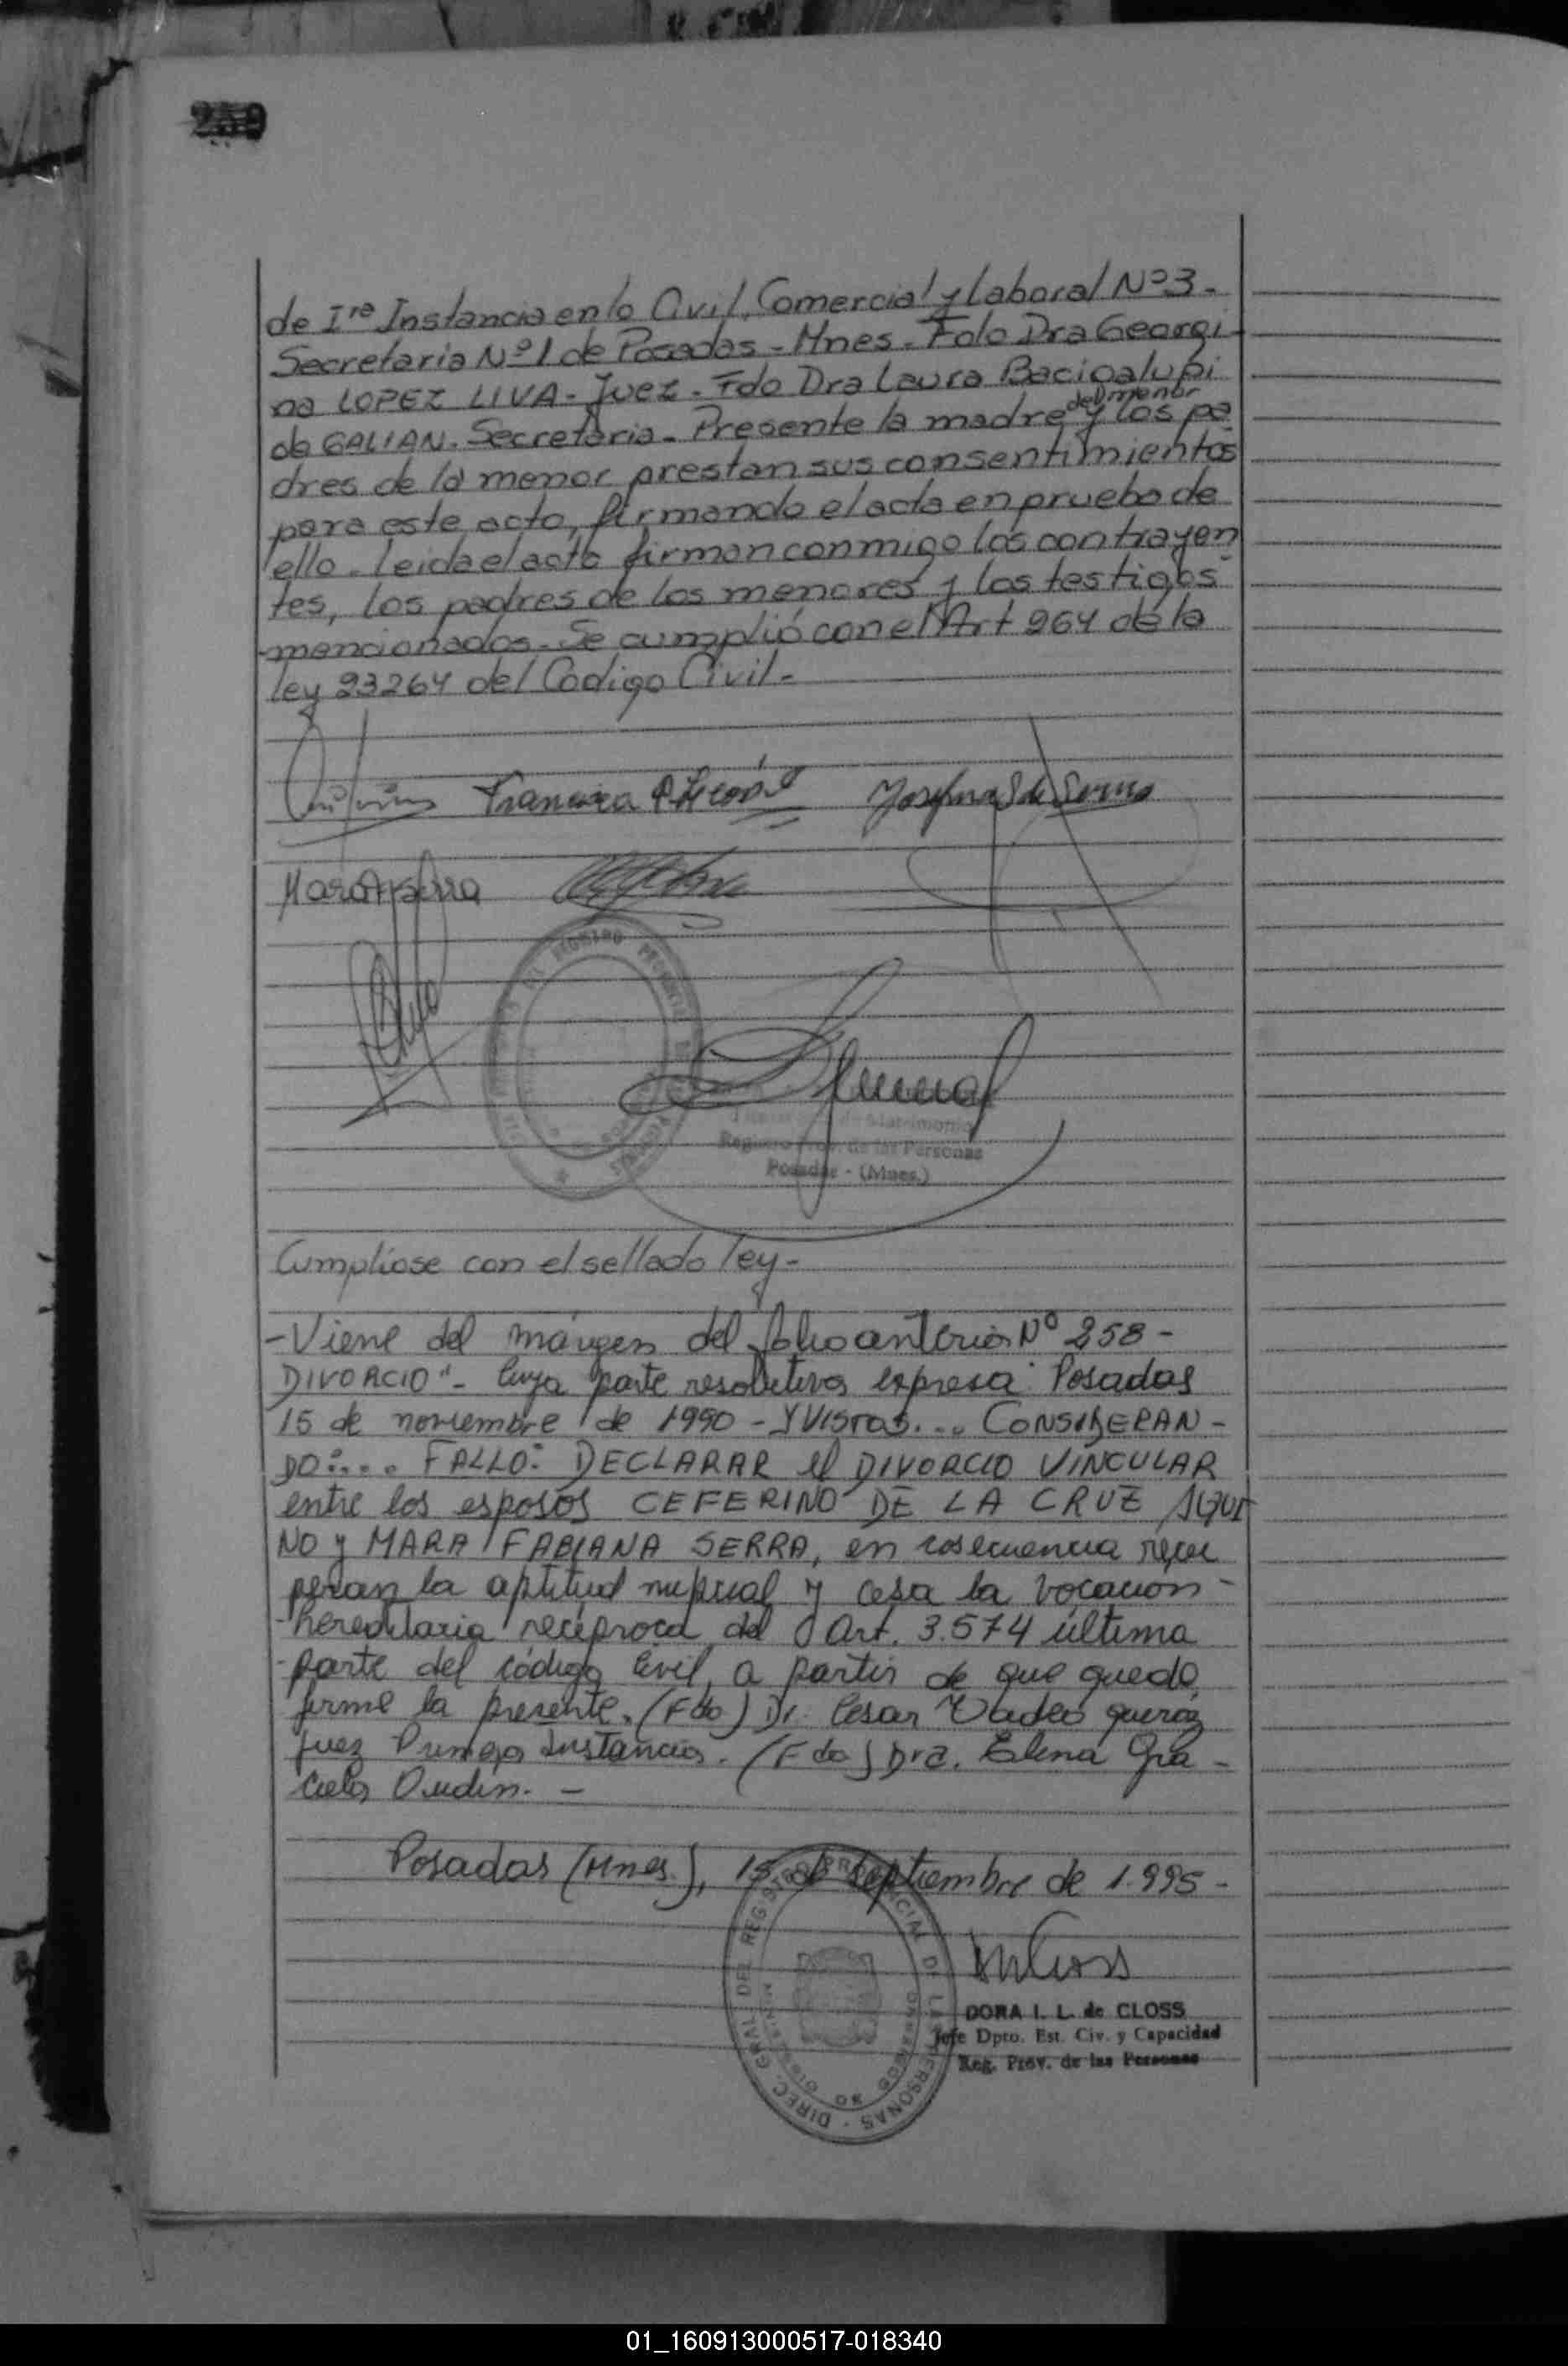 259
de Ira Instancia en lo Civil, Comercial y Laboral Nº3-
Secretaria Nº1 de Posadas - Mnes. Fdo Dra Georgi-
na LOPEZ LIVA - Juez - Fdo Dra Laura Bacigalupi
del menor
de GALIAN. Secretaria. Presente la madre y los pa
dres de la menor prestan sus consentimientos
para este acto, firmando el acta en prueba de
ello. leida el acta firman conmigo los contrayen
tes, los padres de los menores y los testigos
mencionados. Se cumplió con el Art 264 de la
ley 23264 del Código Civil-
Francisca
Josefina S de Serra
Mara F Serra
de Matrimonio
Registro Prov. de las Personas
Posadas - (Mnes.)
Cumpliose con el sellado ley-
-Viene del márgen del folio anterior Nº 258-
DIVORCIO"- Cuya parte resolutiva expresa: Posadas
15 de noviembre de 1990 - Y VISTOS... CONSIDERAN-
DO:... FALLO: DECLARAR el DIVORCIO VINCULAR
entre los esposos CEFERINO DE LA CRUZ AQUI
NO y MARA FABIANA SERRA, en cosecuencia recu
peran la aptitud nupcial y cesa la vocación-
-hereditaria recíproca del Art. 3.574 última
-parte del código Civil, a partir de que quede
firme la presente. (Fdo) Dr. Cesar Tadeo queroz
juez Primera Instancia. (Fdo) Dra. Elena Gra-
ciela Oudin. -
Posadas (Mnes.), 15 de septiembre de 1.995-
DIREC. GRAL DEL REGISTRO PROVINCIAL DE LAS PERSONAS
DORA I. L. de CLOSS
Jefe Dpto. Est. Civ. y Capacidad
Reg. Prov. de las Personas
01_160913000517-018340